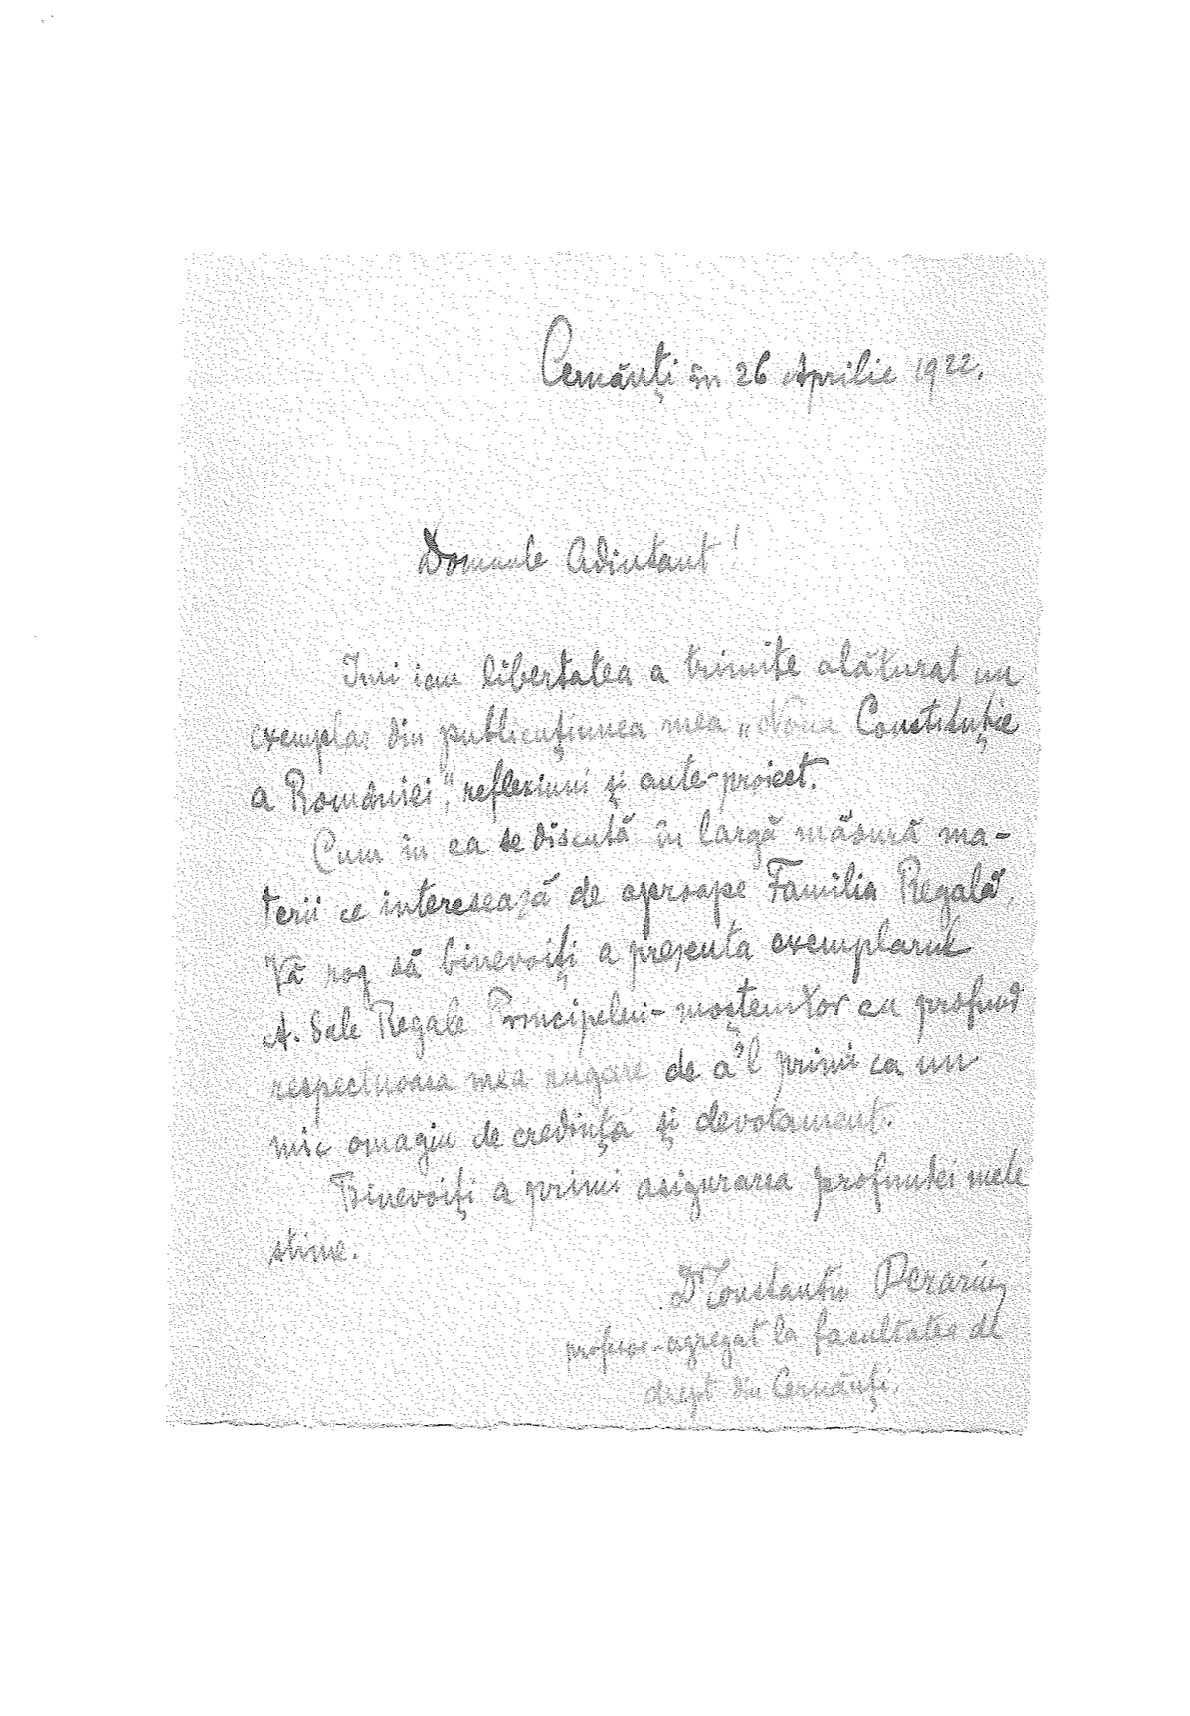 Cernăuți în 26 Aprilie 1922.
Domnule Adiutant!
Imi iau libertatea a trimite alăturat un
exemplar din publicațiunea mea „Noua Constituție
a României", reflexiuni și ante-proiect.
Cum în ea se discută în largă măsură ma-
terii ce interesează de aproape Familia Regală,
Vă rog să binevoiți a prezenta exemplarul
A. Sale Regale Principelui-moștenitor cu profund
respectuoasa mea rugare de a'l primi ca un
mic omagiu de credință și devotament.
Binevoiți a primi asigurarea profundei mele
stime.
Dr Constantin
profesor-agregat la facultatea de
drept din Cernăuți.